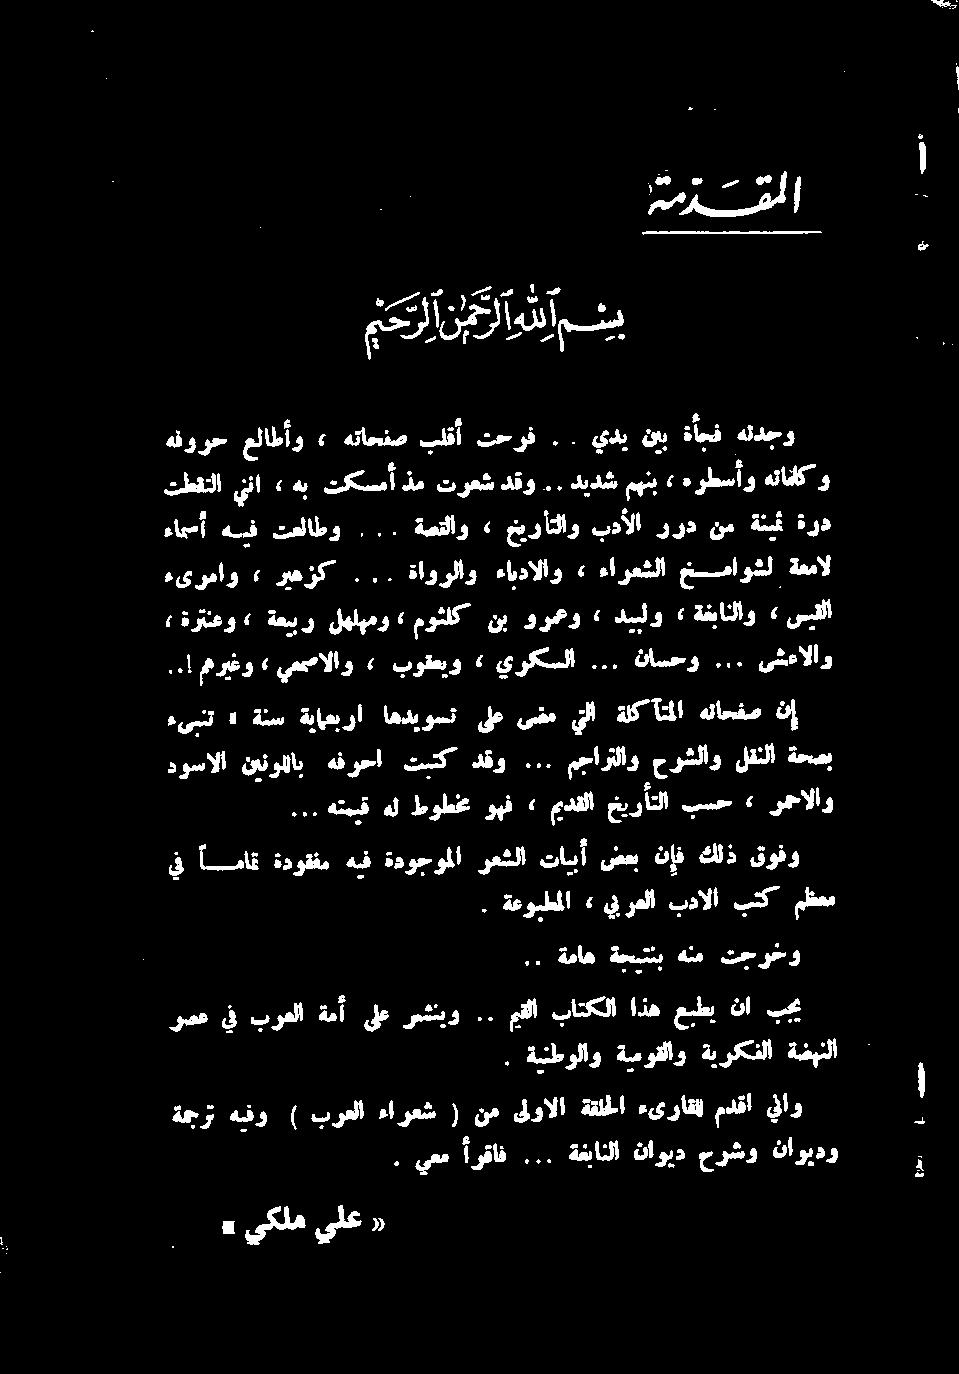 المقدّمة
بسم الله الرحمن الرحيم
وجدته فجأة بين يدي .. فرحت أقلب صفحاته ، وأطالع حروفه
وكلماته وأسطره ، بنهم شديد .. وقد شعرت مذ أمسكت به ، انني التقطت
درة ثمينة من درر الأدب والتأريخ ، والقصة ... وطالعت فيه أسماء
لامعة لشوامخ الشعراء ، والادباء والرواة ... كزهير ، وامرىء
القيس ، والنابغة ، ولبيد ، وعمرو بن كلثوم ، ومهلهل ربيعة ، وعنترة ،
والاعشى ... وحسان ... السكري ، ويعقوب ، والاصمعي ، وغيرهم !..
إن صفحاته المتآكلة التي مضى على تسويدها اربعماية سنة « تنبىء
بصحة النقل والشرح والتراجم ... وقد كتبت احرفه باللونين الاسود
والاحمر ، حسب التأريخ القديم ، فهو مخطوط له قيمته ...
وفوق ذلك فإن بعض أبيات الشعر الموجودة فيه مفقودة تماماً في
معظم كتب الادب العربي ، المطبوعة .
وخرجت منه بنتيجة هامة ..
يجب ان يطبع هذا الكتاب القيم .. وينشر على أمة العرب في عصر
النهضة الفكرية والقومية والوطنية .
واني اقدم للقارىء الحلقة الاولى من ( شعراء العرب ) وفيه ترجمة
وديوان وشرح ديوان النابغة ... فاقرأ معي .
« علي ملكي »